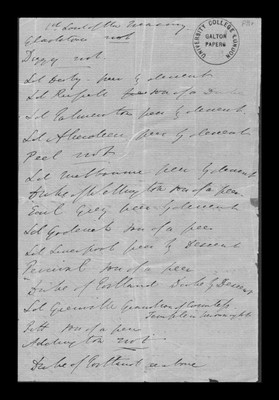 1st Lord of the Treasury
UNIVERSITY COLLEGE LONDON
GALTON PAPERS
Gladstone not
Dizzy not
Ld Derby peer by descent
Ld Russell son of a Duke
Ld Palmerston peer by descent
Ld Aberdeen peer by descent
Peel not
Ld Melbourne peer by descent
Duke of Wellington son of a peer
Earl Grey peer by descent
Ld Goderich son of a peer
Ld Liverpool peer by descent
Perceval son of a peer
Duke of Portland Duke by Descent
Ld Grenville Grandson of Countess
Temple in her own right
Pitt son of a peer
Addington not
Duke of Portland as above